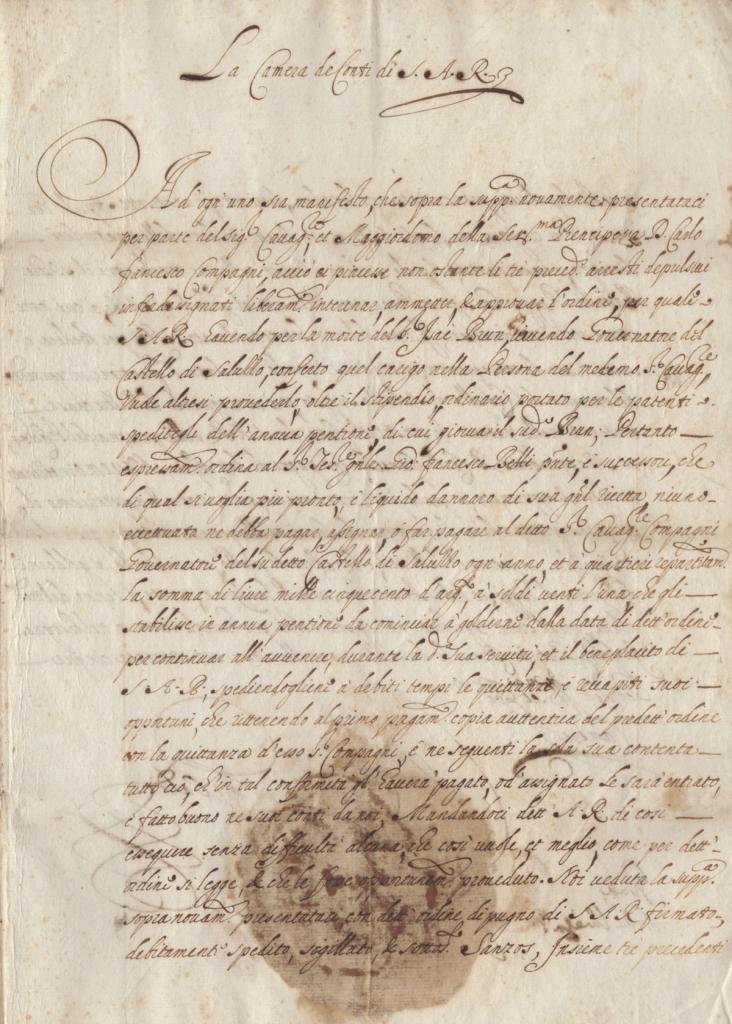 La Camera de Conti di S. A. R.
Ad ogn'uno sia manifesto, che sopra la suppa. novamente presentataci
per parte del sigr. Cavagre. et Maggiordomo della Serma. Prencipessa D. Carlo
francesco Compagni, acciò ci piacesse non ostante le tre preced. aresti de
infradesignati liberam. interinar, ammettere, & approvar l'ordine, per quale
S. A. R. havendo per la morte del S. Brun, vivendo Governatore del
Castello di Salullo, conferto quel carigo nella Persona del medemo Sr. Cavagre.
Vuole altresi provederlo, oltre il stipendio ordinario portato per le patenti
speditegli dell'annua pentione, di cui gioiva il sudo. Brun; Pertanto
espressam. ordina al Sr. Tesre. gnle francesco Belli pnte, e successori, che
di qual si voglia più pronto, e liquido dannaro di sua gnl ricetta, niuno
eccettuato ne debba pagar, assignar, ò far pagare al detto Sr. Cavagre. Compagni
Governatore del sudetto Castello di Salullo ogn'anno, et à quartieri repartitam.
la somma di livre mille cinquecento d'argo. à soldi venti l'una che gli
stabilisse in annua pentione da cominciar à goldirne dalla data di dett'ordine
per continuar all'avvenire, durante la da. sua servitù, et il beneplacito di
S. A. R., spediendogliene à debiti tempi le quittanze, e recapiti suoi
opportuni, che rittenendo al primo pagam. copia auttentica del predett'ordine
con la quittanza d'esso Sr. Compagni, e ne seguenti la sola sua contenta
tutto ciò, ch'in tal conformità gl'haverà pagato, od'assignato le sarà entrato,
e fatto buono ne suoi conti da noi, Mandandoci dett'A. R. di così
eseguire senza difficultà alcuna, che così vuole, et meglio, come per dett'
ordine si legge, & che la opportunam. proveduto. Noi veduta la suppa.
sopra novam. presentataci con dett'ordine, di pugno di S. A. R. firmato,
debitamente spedito, sigillato, & Sanzos, Insieme tre precedenti